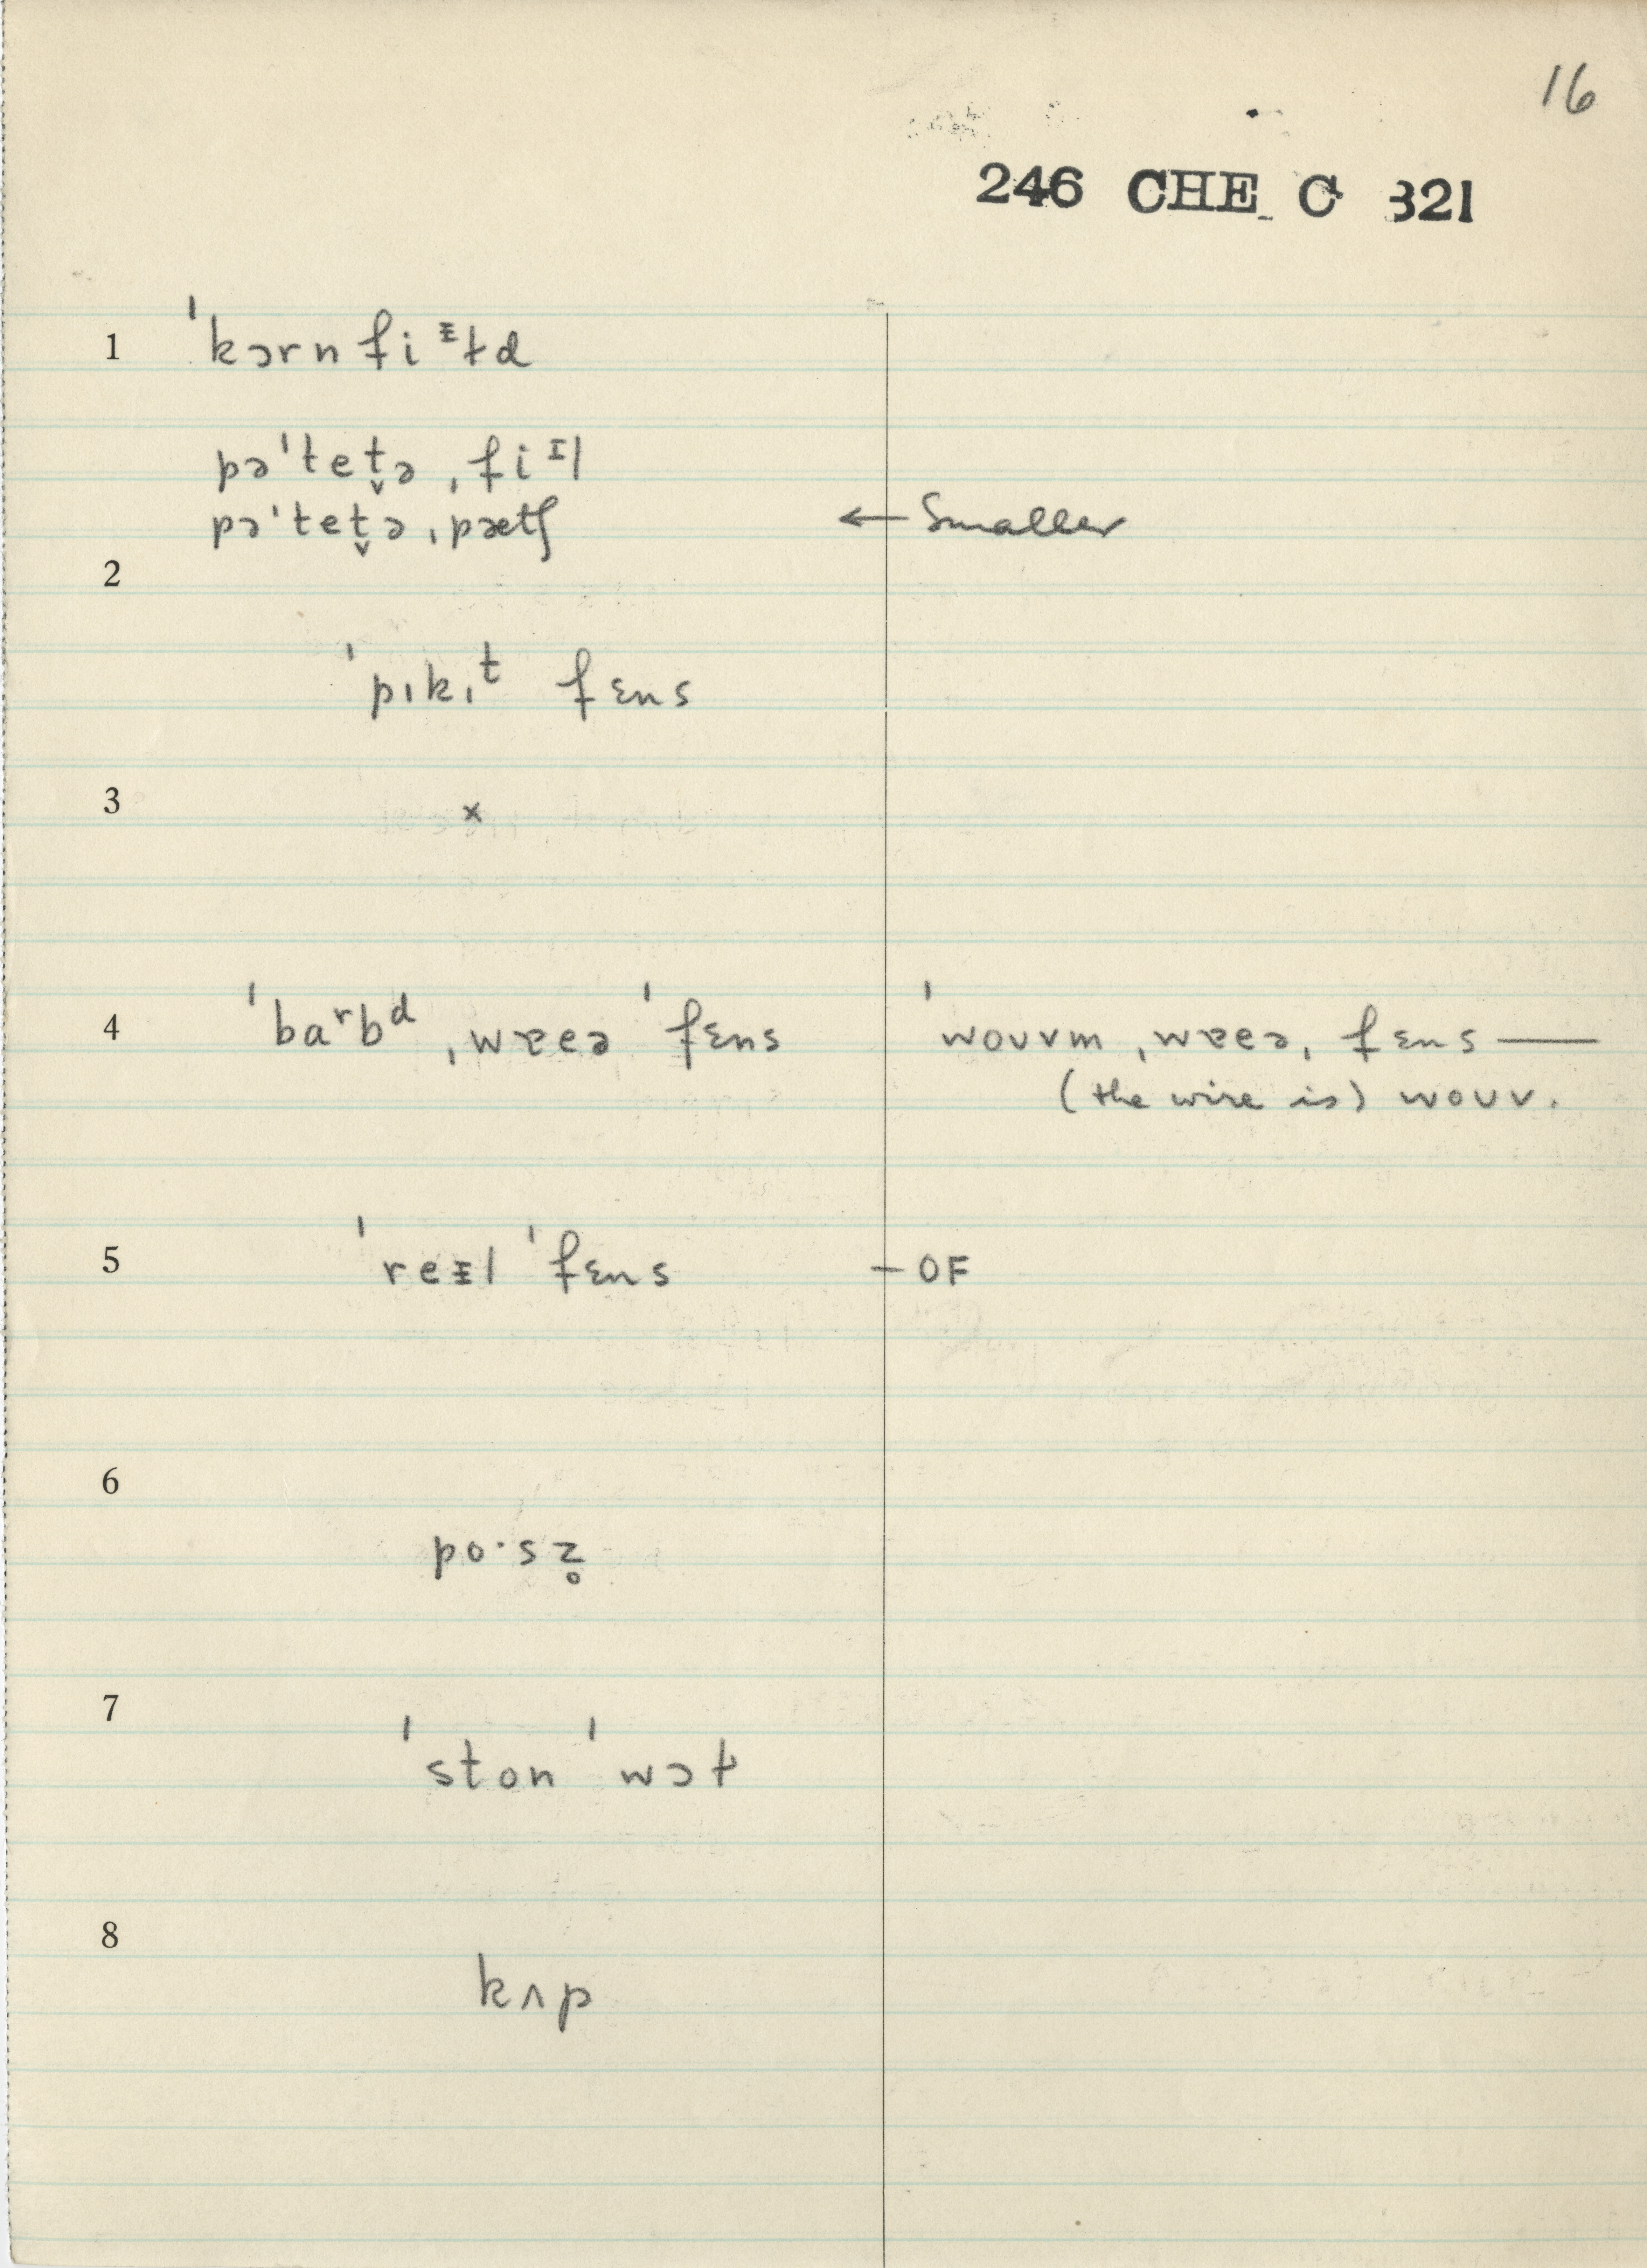 16
246 CHE C 321
1 ˈkɔrn fi ᵻɫd
pəˈtet̬ə ˌfiᶦl
pəˈtet̬ə ˌpætʃ ← Smaller
2
ˈpɪkɪᵗ fɛns
3 ×
4 ˈbaʳbᵈ ˌwɐeə ˈfɛns ˈwouvm ˌwɐeə, fɛns —
(the wire is) wouv.
5 ˈreᵻl ˈfɛns – OF
6
po·sz̥
7
ˈston ˈwɔɫ
8
kʌp